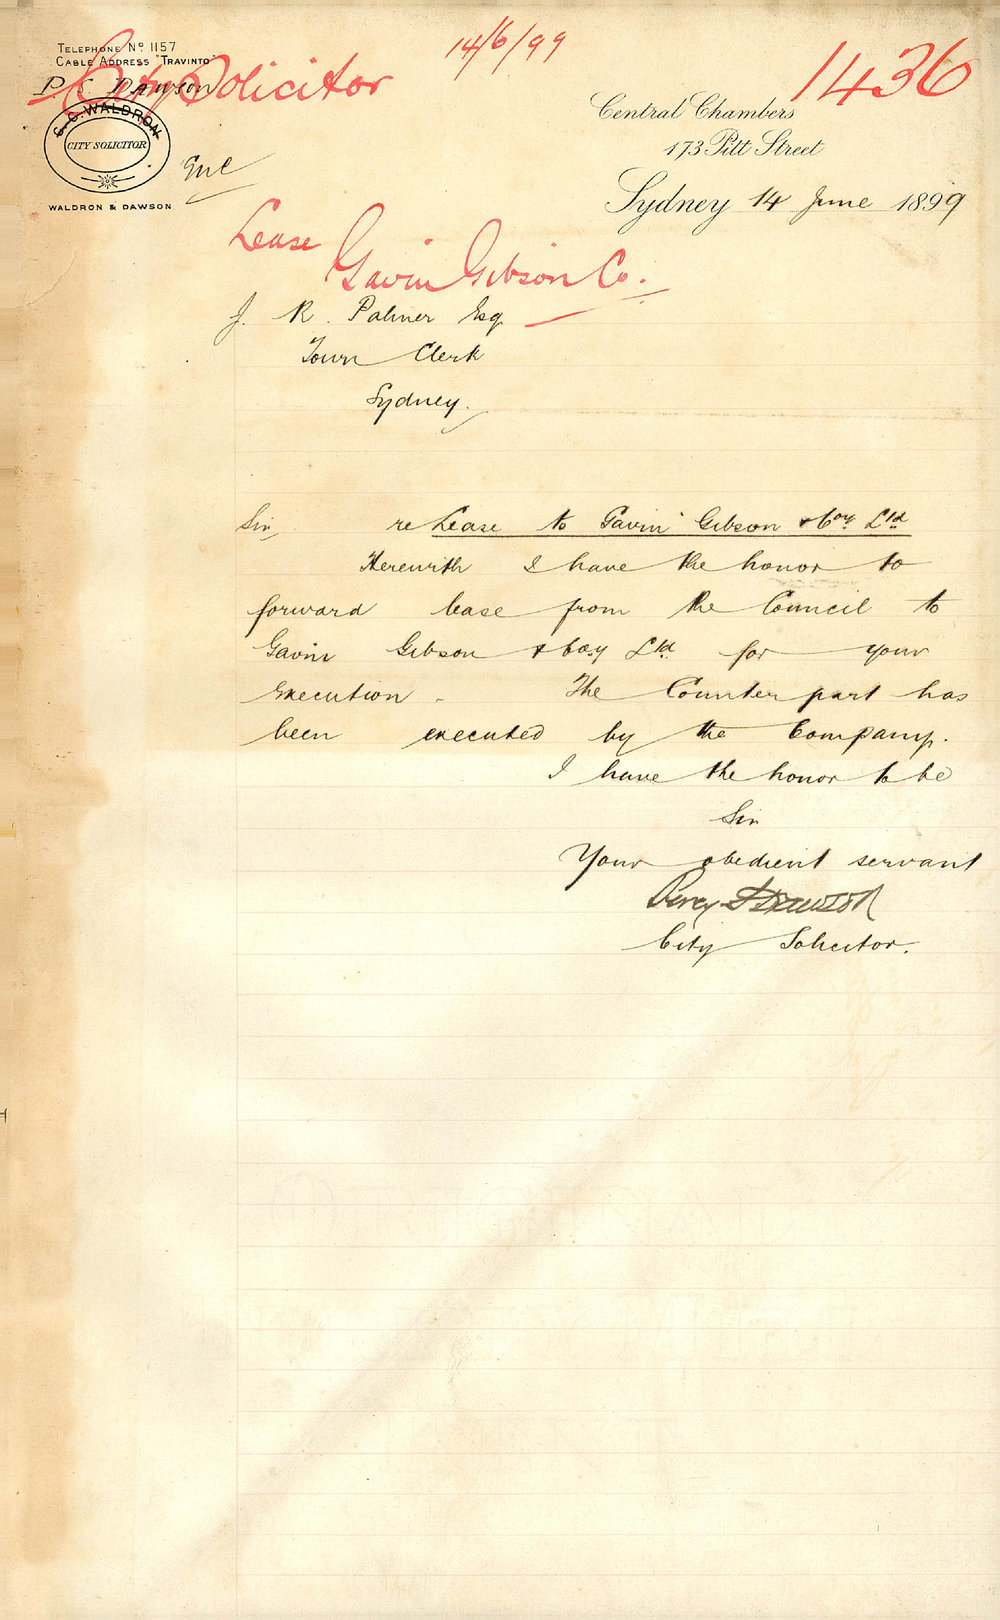 14/6/99
1436
TELEPHONE No 1157
CABLE ADDRESS "TRAVINTO"
City Solicitor
P. S. Dawson
C. C. WALDRON
CITY SOLICITOR
WALDRON & DAWSON
Enc
Central Chambers
173 Pitt Street
Sydney 14 June 1899
Lease
Gavin Gibson Co.
J. R. Palmer Esq
Town Clerk
Sydney.
Sir, re Lease to Gavin Gibson & Coy Ltd
Herewith I have the honor to
forward lease from the Council to
Gavin Gibson & Coy Ltd for your
execution - The Counterpart has
been executed by the Company.
I have the honor to be
Sir
Your obedient servant
Percy S Dawson
City Solicitor.